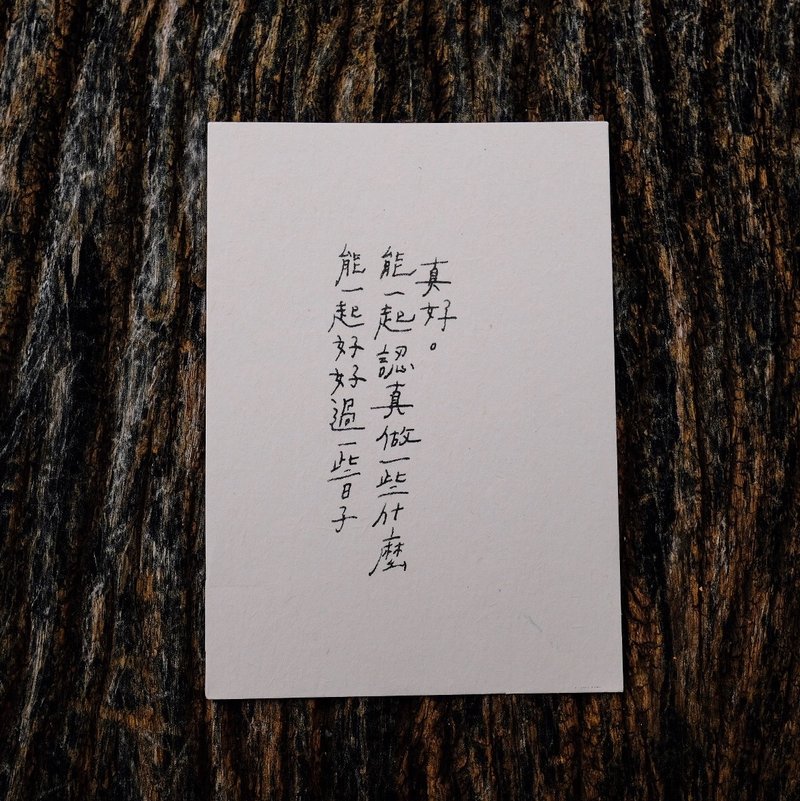 真好。
能一起認真做一些什麼
能一起好好過一些日子